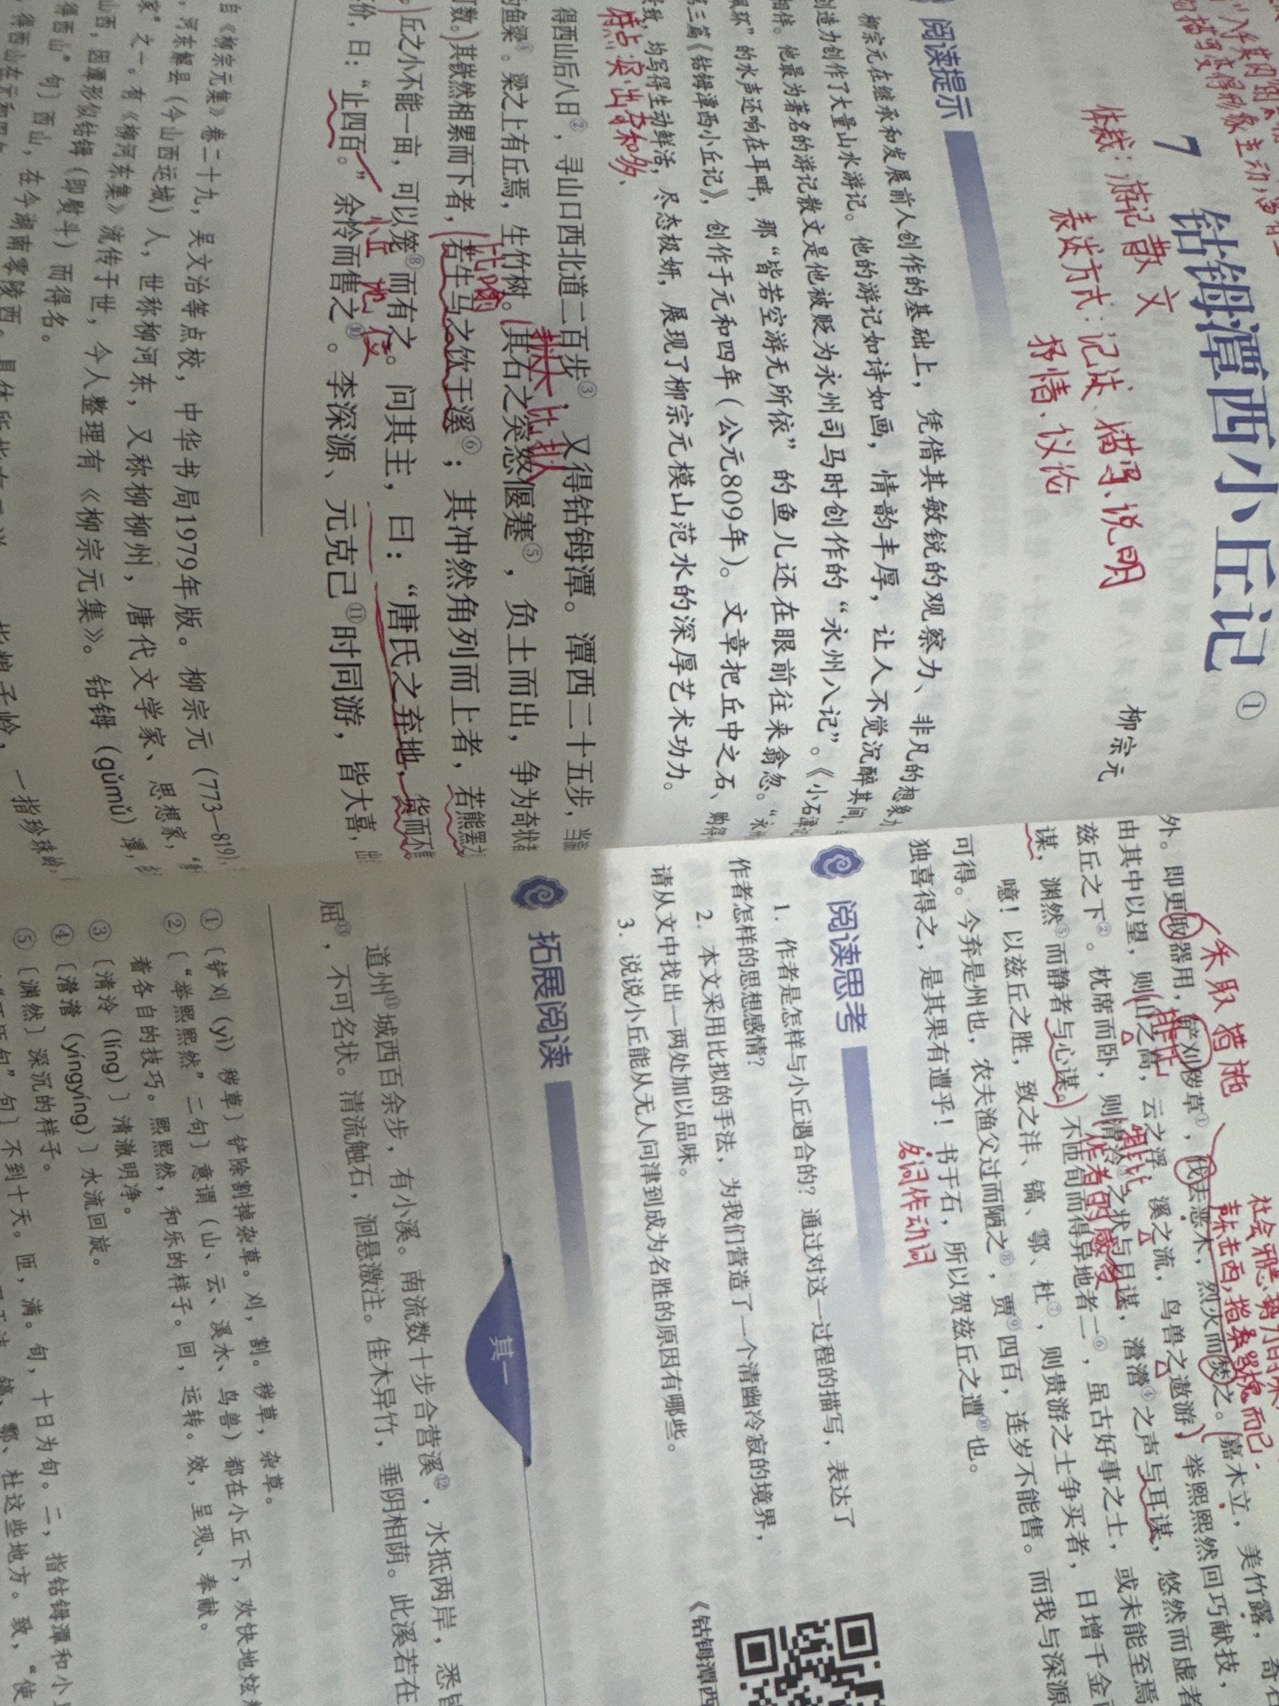 7 钴鉧潭西小丘记①
柳宗元
体裁：游记散文
表达方式：记述、描写、说明
抒情、议论
阅读提示
柳宗元在继承和发展前人创作的基础上，凭借其敏锐的观察力、非凡的想象
创造力创作了大量山水游记。他的游记如诗如画，情韵丰厚，让人不觉沉醉其间，
相伴。他最为著名的游记散文是他被贬为永州司马时创作的“永州八记”。《小石潭
佩环”的水声还响在耳畔，那“皆若空游无所依”的鱼儿还在眼前往来翕忽。“永
第三篇《钴鉧潭西小丘记》，创作于元和四年（公元809年）。文章把丘中之石、购得
致，均写得生动鲜活，尽态极妍，展现了柳宗元模山范水的深厚艺术功力。
特点：突出
得西山后八日②，寻山口西北道二百步③，又得钴鉧潭。潭西二十五步，当
的鱼梁。梁之上有丘焉，生竹树。其石之突怒偃蹇⑤，负土而出，争为奇状者
数。其嵚然相累而下者，若牛马之饮于溪⑥；其冲然角列而上者，若熊罴
比喻
丘之小不能一亩，可以笼⑧而有之。问其主，曰：“唐氏之弃地，货而不售
价，曰：“止四百。”余怜而售之⑩。李深源、元克己⑪时同游，皆大喜，出
自《柳宗元集》卷二十九，吴文治等点校，中华书局1979年版。柳宗元（773—819），
，河东解县（今山西运城）人，世称柳河东，又称柳柳州，唐代文学家、思想家，
家”之一。有《柳河东集》流传于世，今人整理有《柳宗元集》。钴鉧（gǔmǔ）潭，
山西，因潭形似钴鉧（即熨斗）而得名。
得西山”句〕西山，在今湖南零陵西。
外。即更取器用，铲刈秽草①，伐去恶木，烈火而焚之。嘉木立，美竹露，奇石
由其中以望，则山之高，云之浮，溪之流，鸟兽之遨游，举熙熙然回巧献技，
兹丘之下②。枕席而卧，则清泠③之状与目谋，瀯瀯④之声与耳谋，悠然而虚者
谋，渊然⑤而静者与心谋。不匝旬而得异地者二⑥，虽古好事之士，或未能至焉
噫！以兹丘之胜，致之沣、镐、鄠、杜⑦，则贵游之士争买者，日增千金
可得。今弃是州也，农夫渔父过而陋之⑧，贾⑨四百，连岁不能售。而我与深源
独喜得之，是其果有遭乎！书于石，所以贺兹丘之遭⑩也。
采取措施
排比
作者的感受
名词作动词
阅读思考
1. 作者是怎样与小丘遇合的？通过对这一过程的描写，表达了
作者怎样的思想感情？
2. 本文采用比拟的手法，为我们营造了一个清幽冷寂的境界，
请从文中找出一两处加以品味。
3. 说说小丘能从无人问津到成为名胜的原因有哪些。
《钴鉧潭西
拓展阅读
其一
道州⑪城西百余步，有小溪。南流数十步合营溪⑫，水抵两岸，悉皆
屈⑬，不可名状。清流触石，洄悬激注。佳木异竹，垂阴相荫。此溪若在
①〔铲刈（yì）秽草〕铲除割掉杂草。刈，割。秽草，杂草。
②〔“举熙熙然”二句〕意谓（山、云、溪水、鸟兽）都在小丘下，欢快地炫耀
着各自的技巧。熙熙然，和乐的样子。回，运转。效，呈现、奉献。
③〔清泠（líng）〕清澈明净。
④〔瀯瀯（yíngyíng）〕水流回旋。
⑤〔渊然〕深沉的样子。
句”句〕不到十天。匝，满。旬，十日为旬。二，指钴鉧潭和小丘